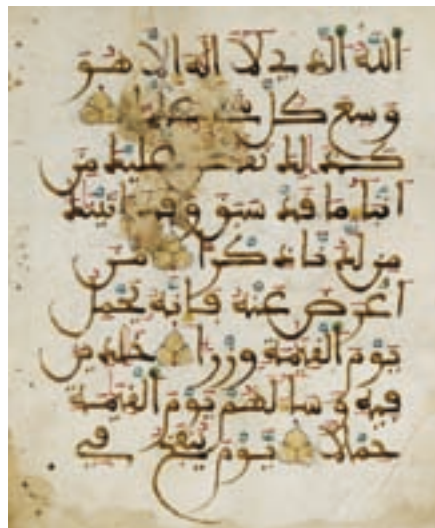 الله الذي لا اله الا هو
وسع كل شيء علما
كذلك نقص عليك من
انبا ما قد سبق وقد اتينك
من لدنا ذكرا من
اعرض عنه فانه يحمل
يوم القيمة وزرا خلدين
فيه وسا لهم يوم القيمة
حملا يوم ينفخ في